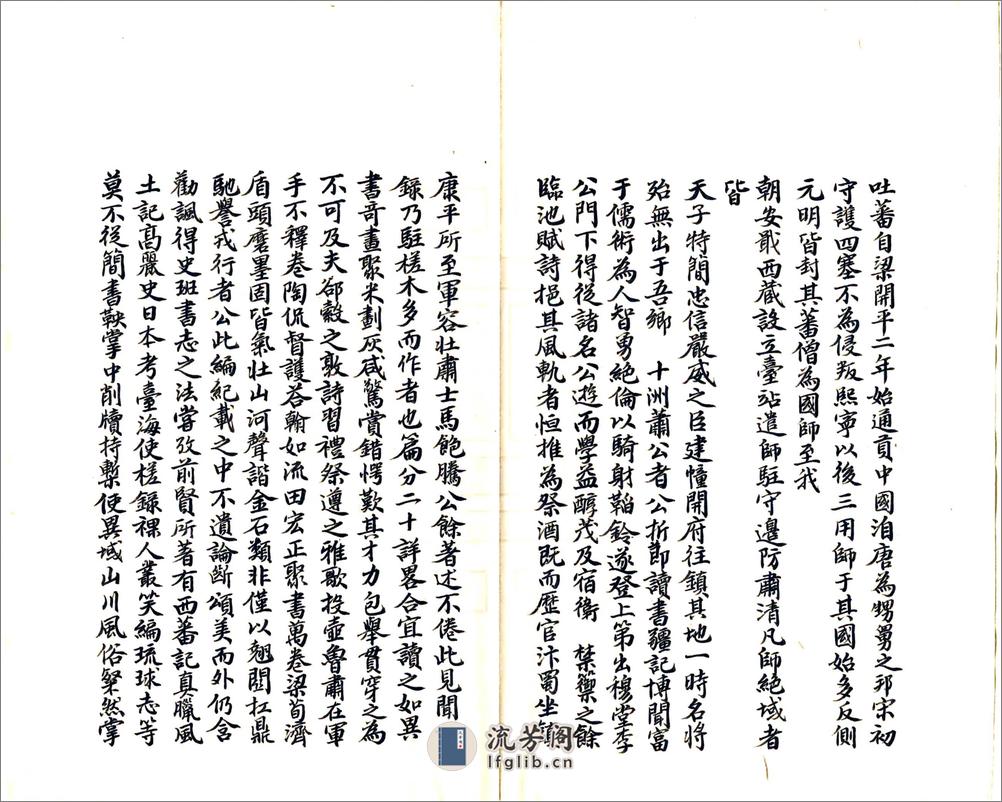 吐蕃自梁開平二年始通貢中國洎唐為甥舅之邦宋初
守護四塞不為侵叛熙寧以後三用師于其國始多反側
元明皆封其蕃僧為國師至我
朝安戢西藏設立臺站遣師駐守邊防肅清凡師絕域者
皆
天子特簡忠信嚴威之臣建幢開府往鎮其地一時名將
殆無出于吾鄉 十洲蕭公者公折節讀書疆記博聞富
于儒術為人智勇絕倫以騎射韜鈐遂登上第出穆堂李
公門下得從諸名公遊而學益醇茂及宿衛 禁籞之餘
臨池賦詩挹其風軌者恒推為祭酒既而歷官汴蜀坐鎮
康平所至軍容壯肅士馬飽騰公餘著述不倦此見聞
錄乃駐槎木多而作者也篇分二十詳畧合宜讀之如異
書哥畫聚米劃灰咸驚賞錯愕歎其才力包舉貫穿之為
不可及夫郤縠之敦詩習禮祭遵之雅歌投壺魯肅在軍
手不釋卷陶侃督護荅翰如流田宏正聚書萬卷梁荀濟
盾頭磨墨固皆氣壯山河聲諧金石類非僅以翹關扛鼎
馳譽戎行者公此編紀載之中不遺論斷頌美而外仍含
勸諷得史班書志之法嘗攷前賢所著有西蕃記真臘風
土記高麗史日本考臺海使槎錄裸人叢笑編琉球志等
莫不從簡書鞅掌中削牘持槧使異域山川風俗粲然掌
流芳閣
lfglib.cn